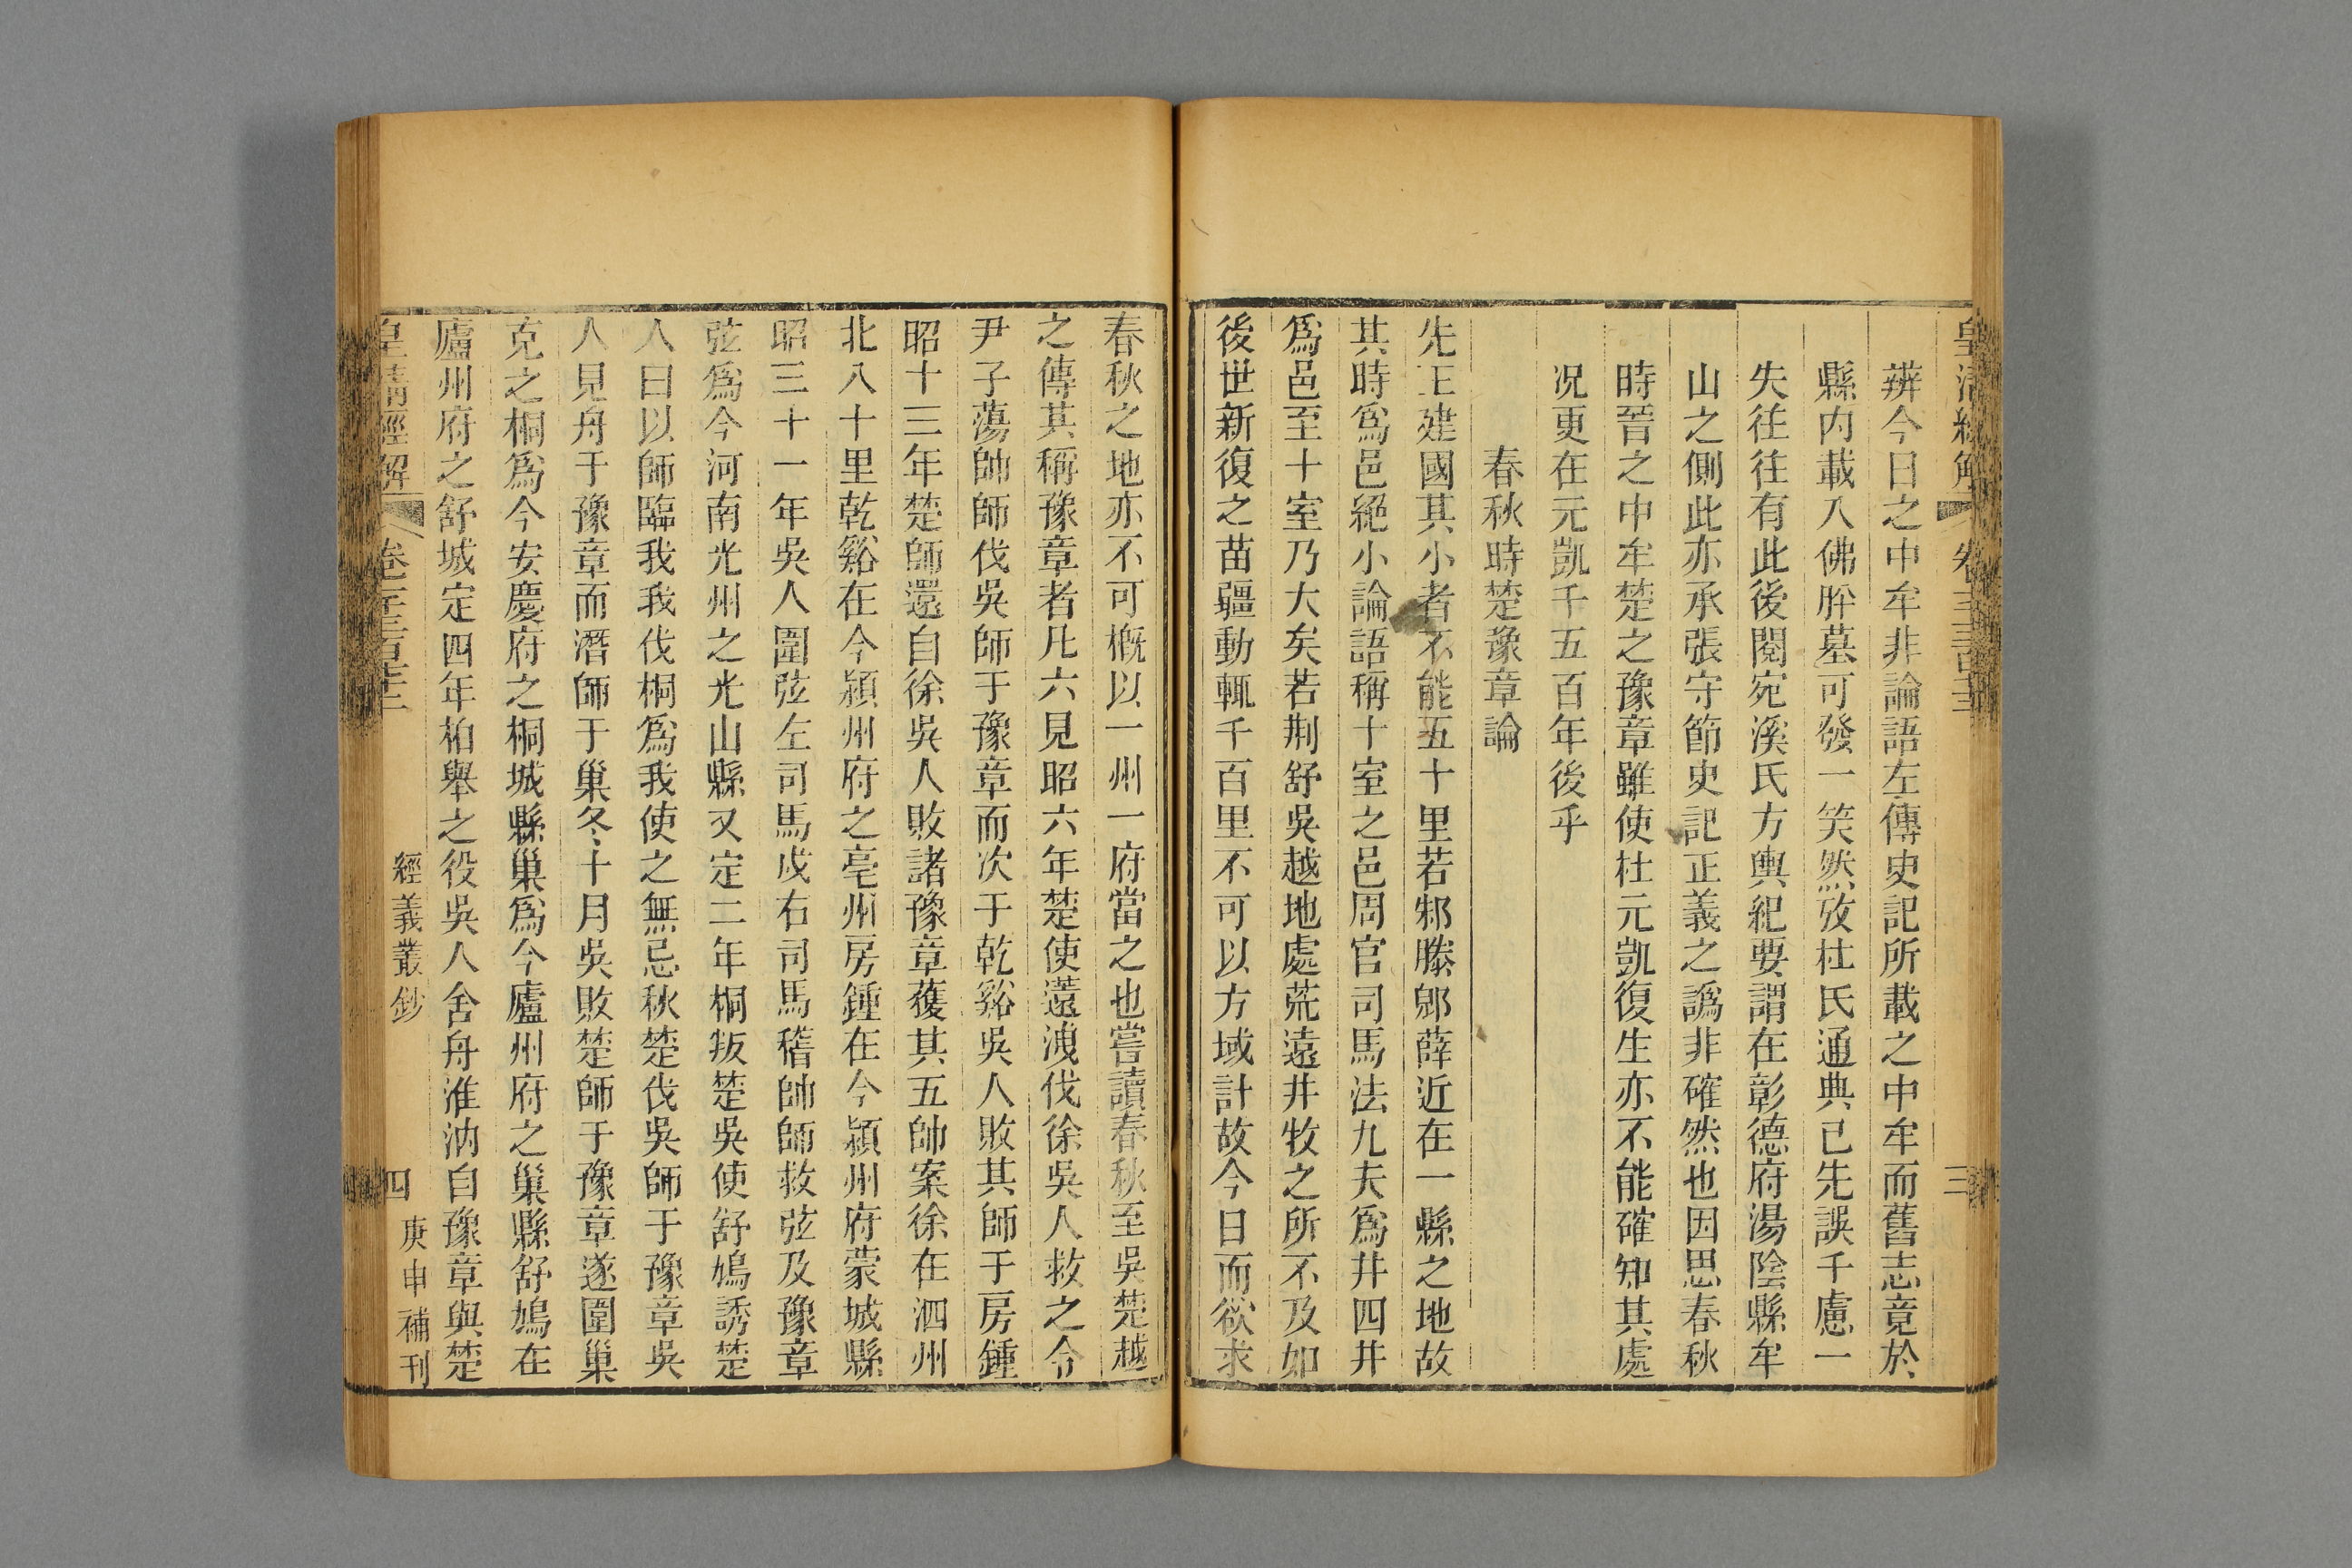 皇清經解
卷
三
辨今日之中牟非論語左傳史記所載之中牟而舊志竟於
縣內載入佛肸墓可發一笑然攷杜氏通典已先誤千慮一
失往往有此後閱宛溪氏方輿紀要謂在彰德府湯陰縣牟
山之側此亦承張守節史記正義之譌非確然也因思春秋
時晉之中牟楚之豫章雖使杜元凱復生亦不能確知其處
况更在元凱千五百年後乎
春秋時楚豫章論
先王建國其小者不能五十里若邾滕郳薛近在一縣之地故
其時爲邑絕小論語稱十室之邑周官司馬法九夫爲井四井
爲邑至十室乃大矣若荆舒吳越地處荒遠井牧之所不及如
後世新復之苗疆動輒千百里不可以方域計故今日而欲求
春秋之地亦不可概以一州一府當之也嘗讀春秋至吳楚越
之傳其稱豫章者凡六見昭六年楚使薳洩伐徐吳人救之令
尹子蕩帥師伐吳師于豫章而次于乾谿吳人敗其師于房鍾
昭十三年楚師還自徐吳人敗諸豫章蒦其五帥案徐在泗州
北八十里乾谿在今潁州府之亳州房鍾在今潁州府蒙城縣
昭三十一年吳人圍弦左司馬戌右司馬稽帥師救弦及豫章
弦爲今河南光州之光山縣又定二年桐叛楚吳使舒鳩誘楚
人曰以師臨我我伐桐爲我使之無忌秋楚伐吳師于豫章吳
人見舟于豫章而潛師于巢冬十月吳敗楚師于豫章遂圍巢
克之桐爲今安慶府之桐城縣巢爲今廬州府之巢縣舒鳩在
廬州府之舒城定四年柏舉之役吳人舍舟淮汭自豫章與楚
皇清經解
卷
經義叢鈔
四
庚申補刊